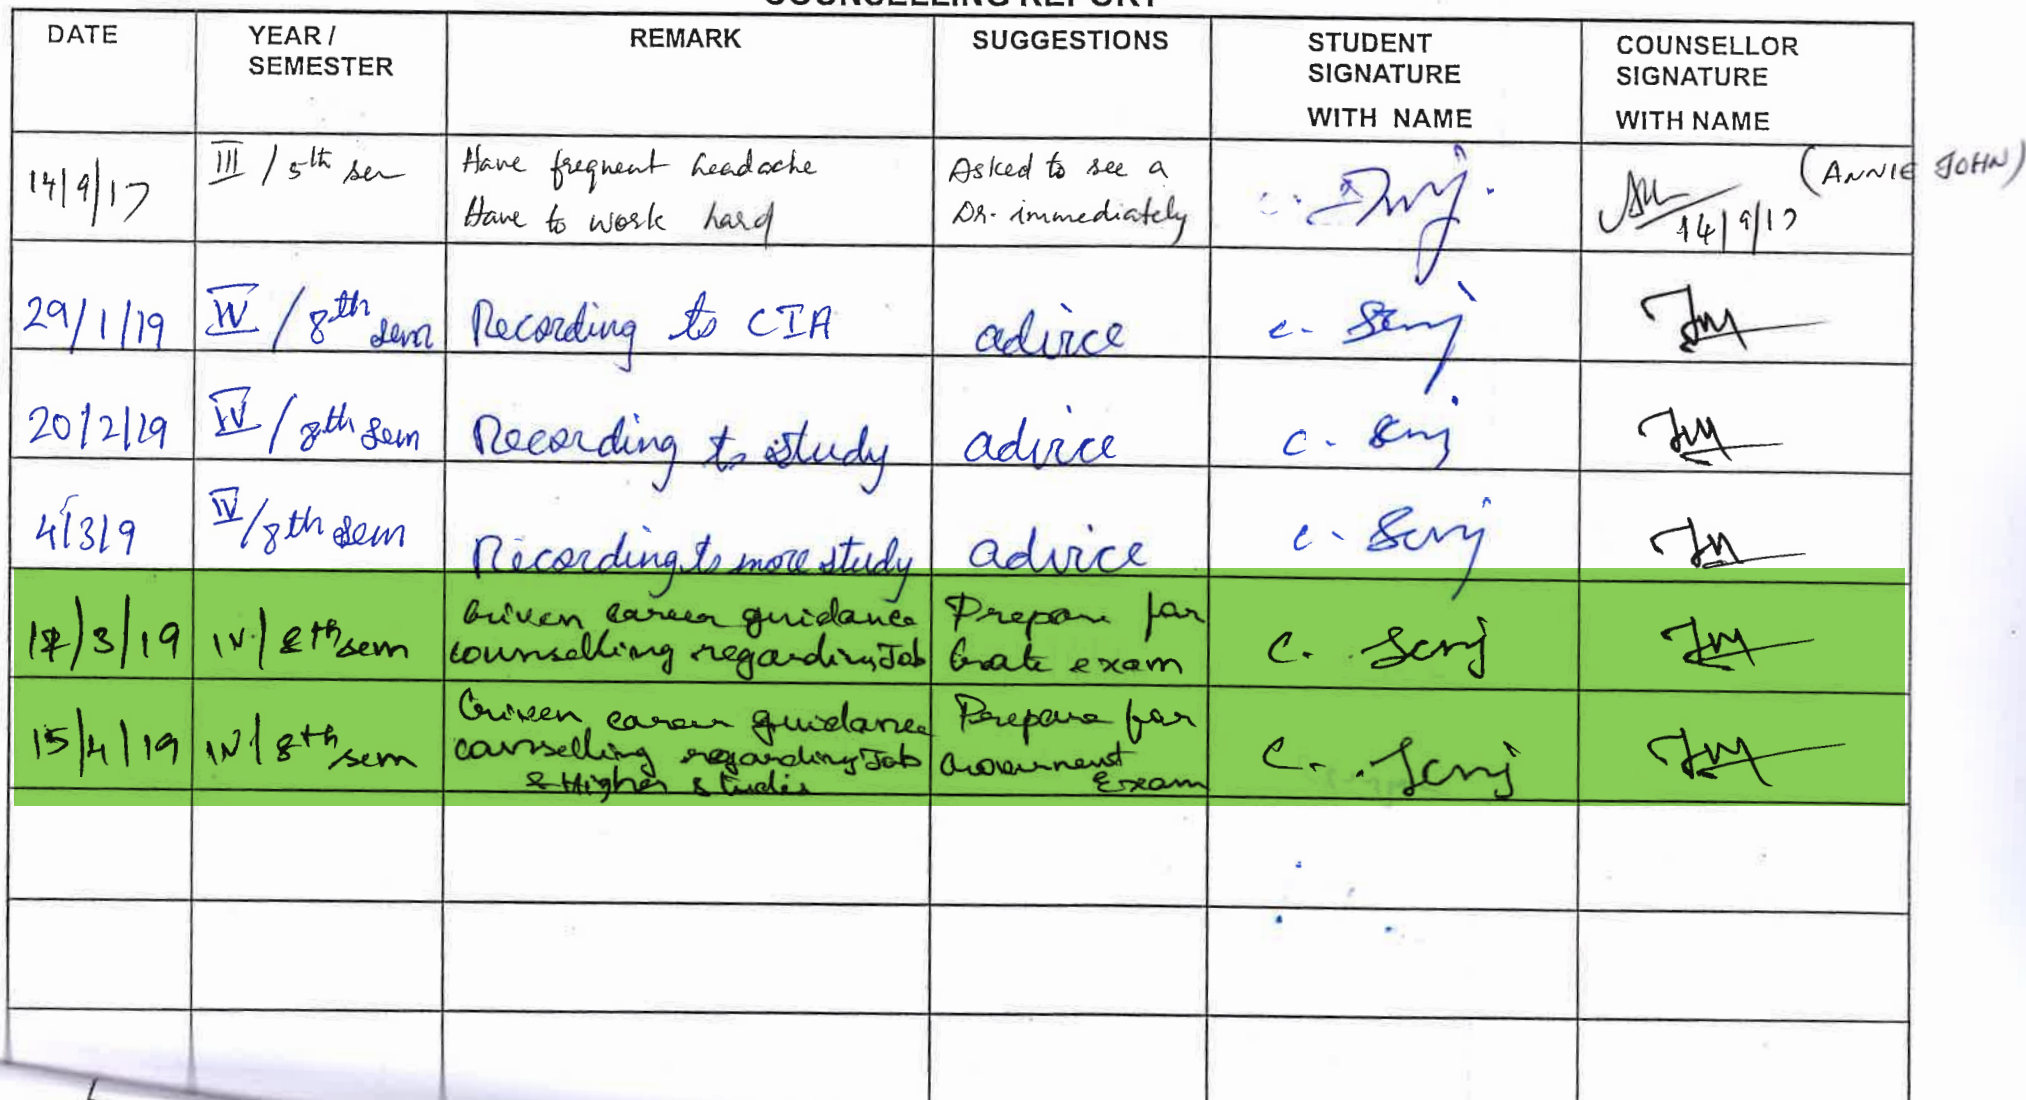 COUNSELLING REPORT
DATE
YEAR /
SEMESTER
REMARK
SUGGESTIONS
STUDENT
SIGNATURE
WITH NAME
COUNSELLOR
SIGNATURE
WITH NAME
14/9/17
III / 5th sem
Have frequent headache
Have to work hard
Asked to see a
Dr. immediately
14/9/17
(ANNIE JOHN)
29/1/19
IV / 8th sem
Recording to CIA
advice
20/2/19
IV / 8th sem
Recording to study
advice
4/3/9
IV / 8th sem
Recording to more study
advice
/3/19
IV / 8th sem
Given career guidance
counselling regarding Job
Prepare for
Gate exam
15/4/19
IV / 8th sem
Given career guidance
counselling regarding Job
& Higher studies
Prepare for
Government
Exam